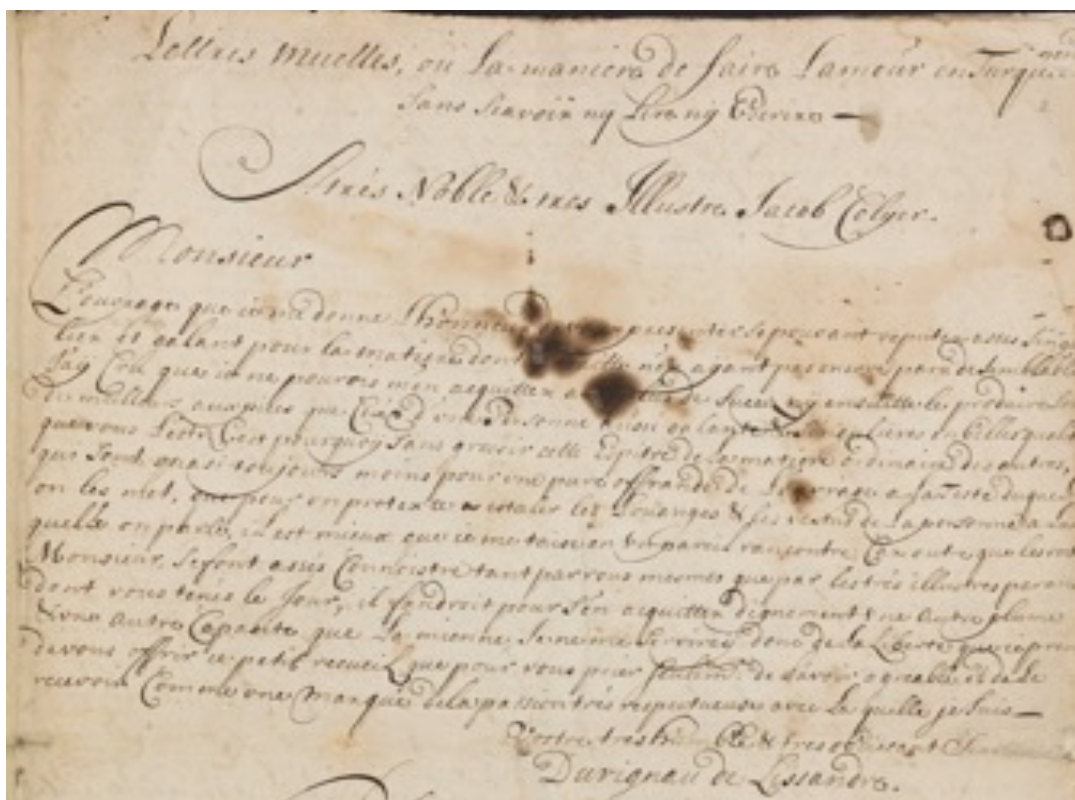 Lettres Muettes, ou La maniere de faire Lamour en Turquie
sans scavoir ny Lire ny Ecrire —
A très Noble & tres Illustre Jacob Colyer.
Monsieur
L'ouvrage que ie me donne L'honneur presenter se pouvant reputer assés singu
lier et galant pour la matiere dont n'en ayant pas encore paru de semblable
J'ay Crû que ie ne pouvois m'en acquitter de succez ny en suitte le produire sous
de meilleurs auspices que Ceux d'une Personne aussi galante
que vous L'estes C'est pourquoy sans grossir cette Epitre de la matiere ordinaire des autres,
qui sont quasi toujours moins pour une pure offrande de L'ouvrage
on les met, que pour un pretexte a estaler les Louanges & les vertus de la personne a la
quelle on parle, il est mieux que ie me taise en un pareil rencontre Car outre que les votres
Monsieur, se font assés Connoistre tant par vous mesmes que par les très illustres parens
dont vous tenés le Jour, il faudroit pour s'en acquitter dignement une autre plume
& une autre Capacité que La mienne Je ne me serviray donc de la Liberté que ie prens
de vous offrir ce petit recueil que pour vous prier de L'avoir agreable & de le
recevoir Comme une Marque de la passion très respectueuse avec La quelle je suis —
Vostre tres humble & tres obeissant
Duvignau de Lissandre.